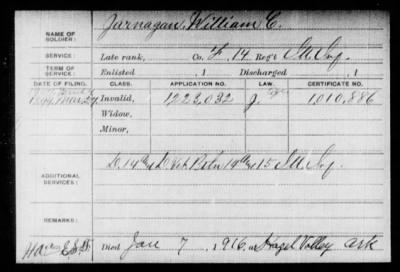 NAME OF SOLDIER: Jurnagan, William C.
SERVICE: Late rank, Co. F, 14 Reg't Ill Inf.
TERM OF SERVICE: Enlisted , 1 Discharged , 1
DATE OF FILING. CLASS. APPLICATION NO. LAW. CERTIFICATE NO.
1899 Mar 27 Invalid, 1223,032 1,010,886
Widow,
Minor,
ADDITIONAL SERVICES: 14 & 15 Ill Inf.
REMARKS:
Died Jan 7, 1916, at Hazel Valley Ark